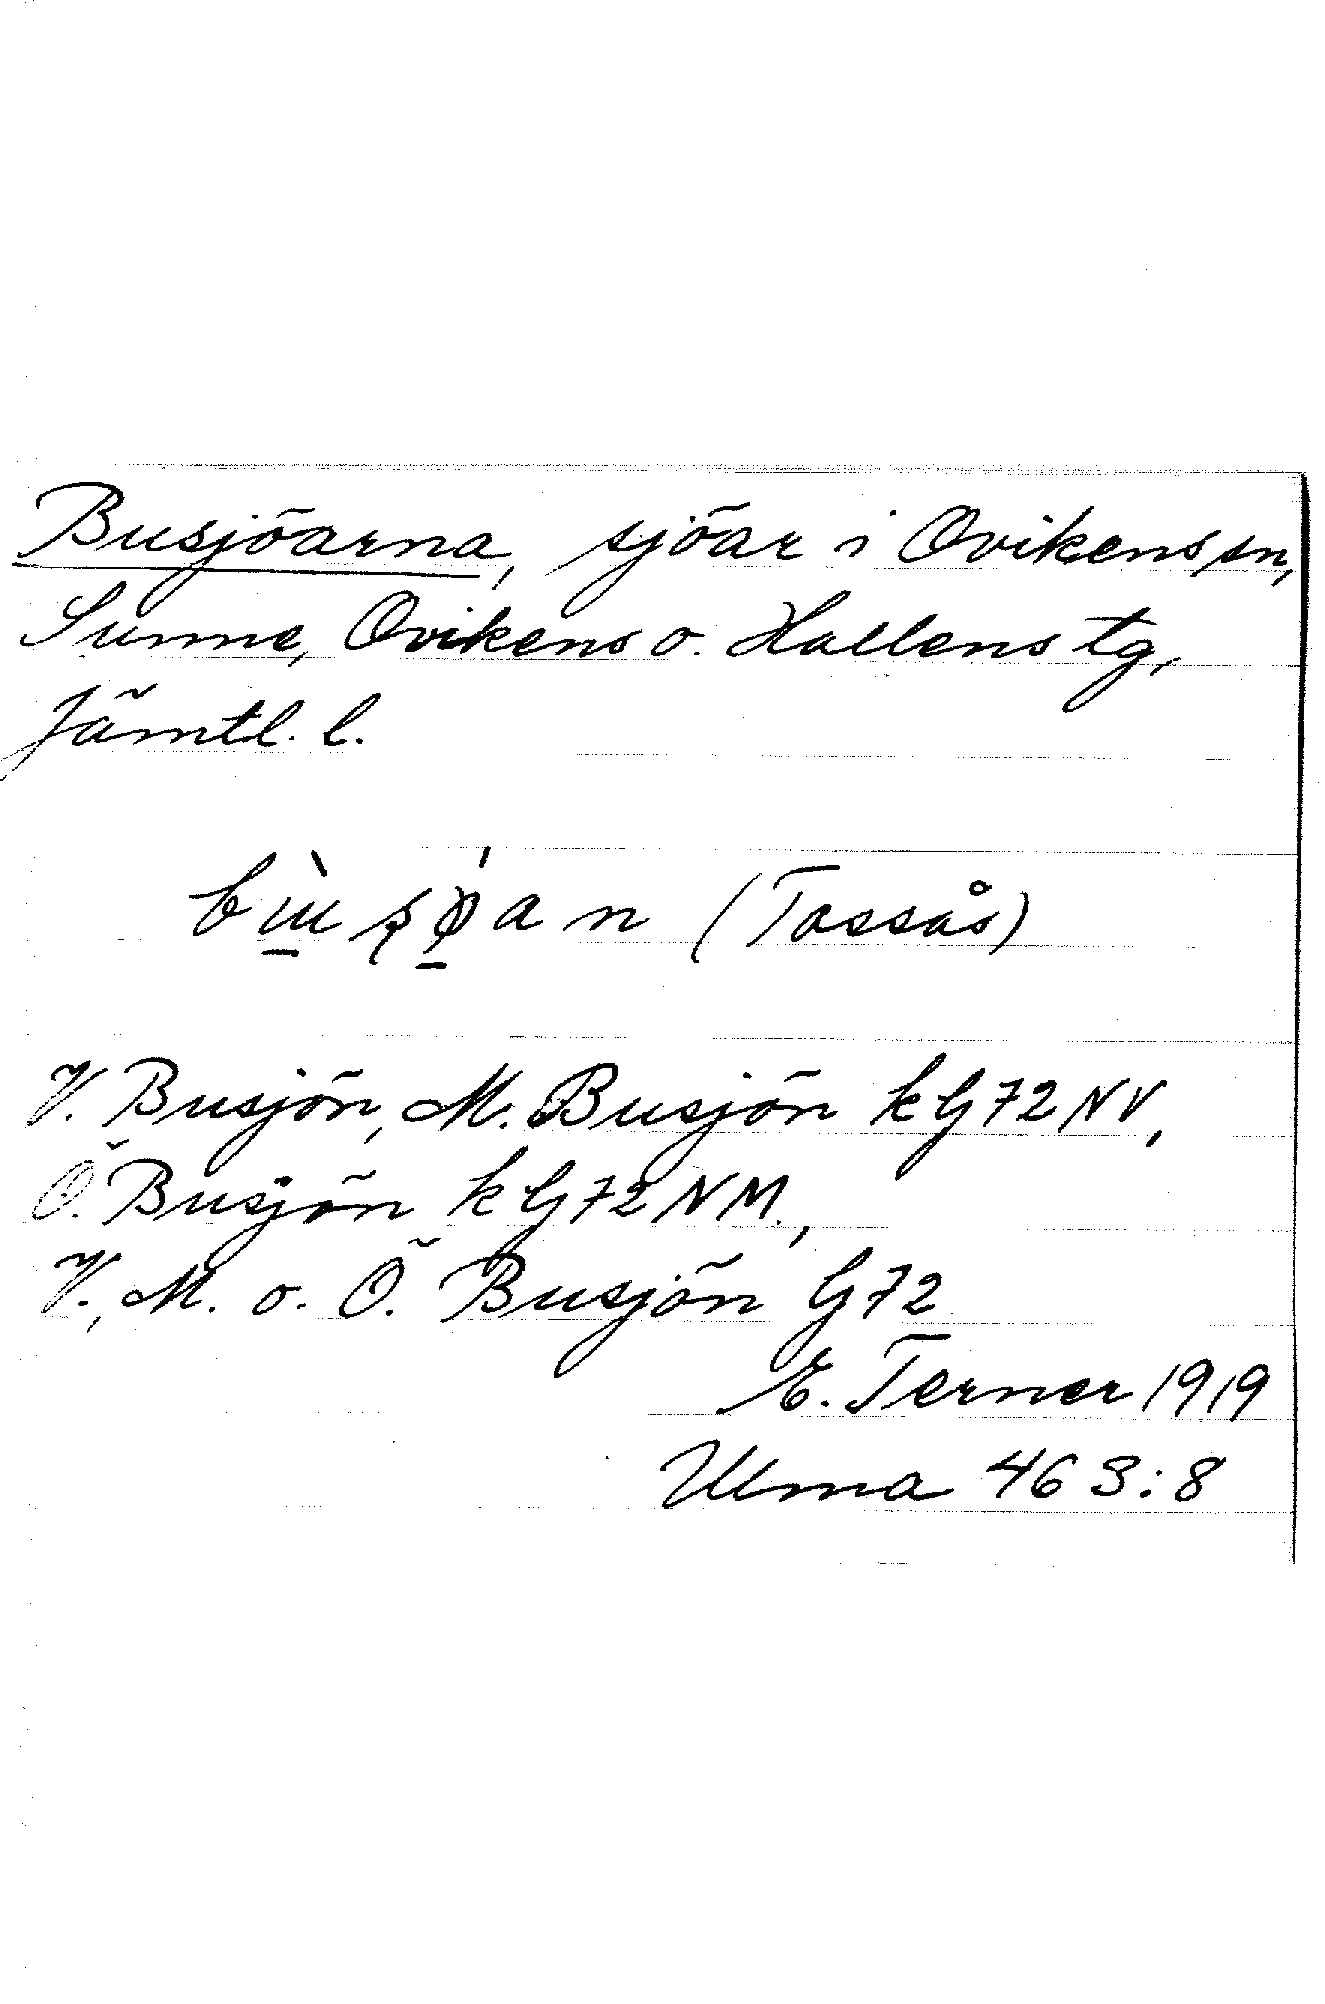 Busjöarna, sjöar i Ovikens sn,
Sunne, Ovikens o. Hallens tg,
Jämtl. l.
(Tossås)
V. Busjön, M. Busjön kG72NV,
Ö. Busjön kG72NM.,
V., M. o. Ö. Busjön G72
E. Terner 1919
Ulma 463:8